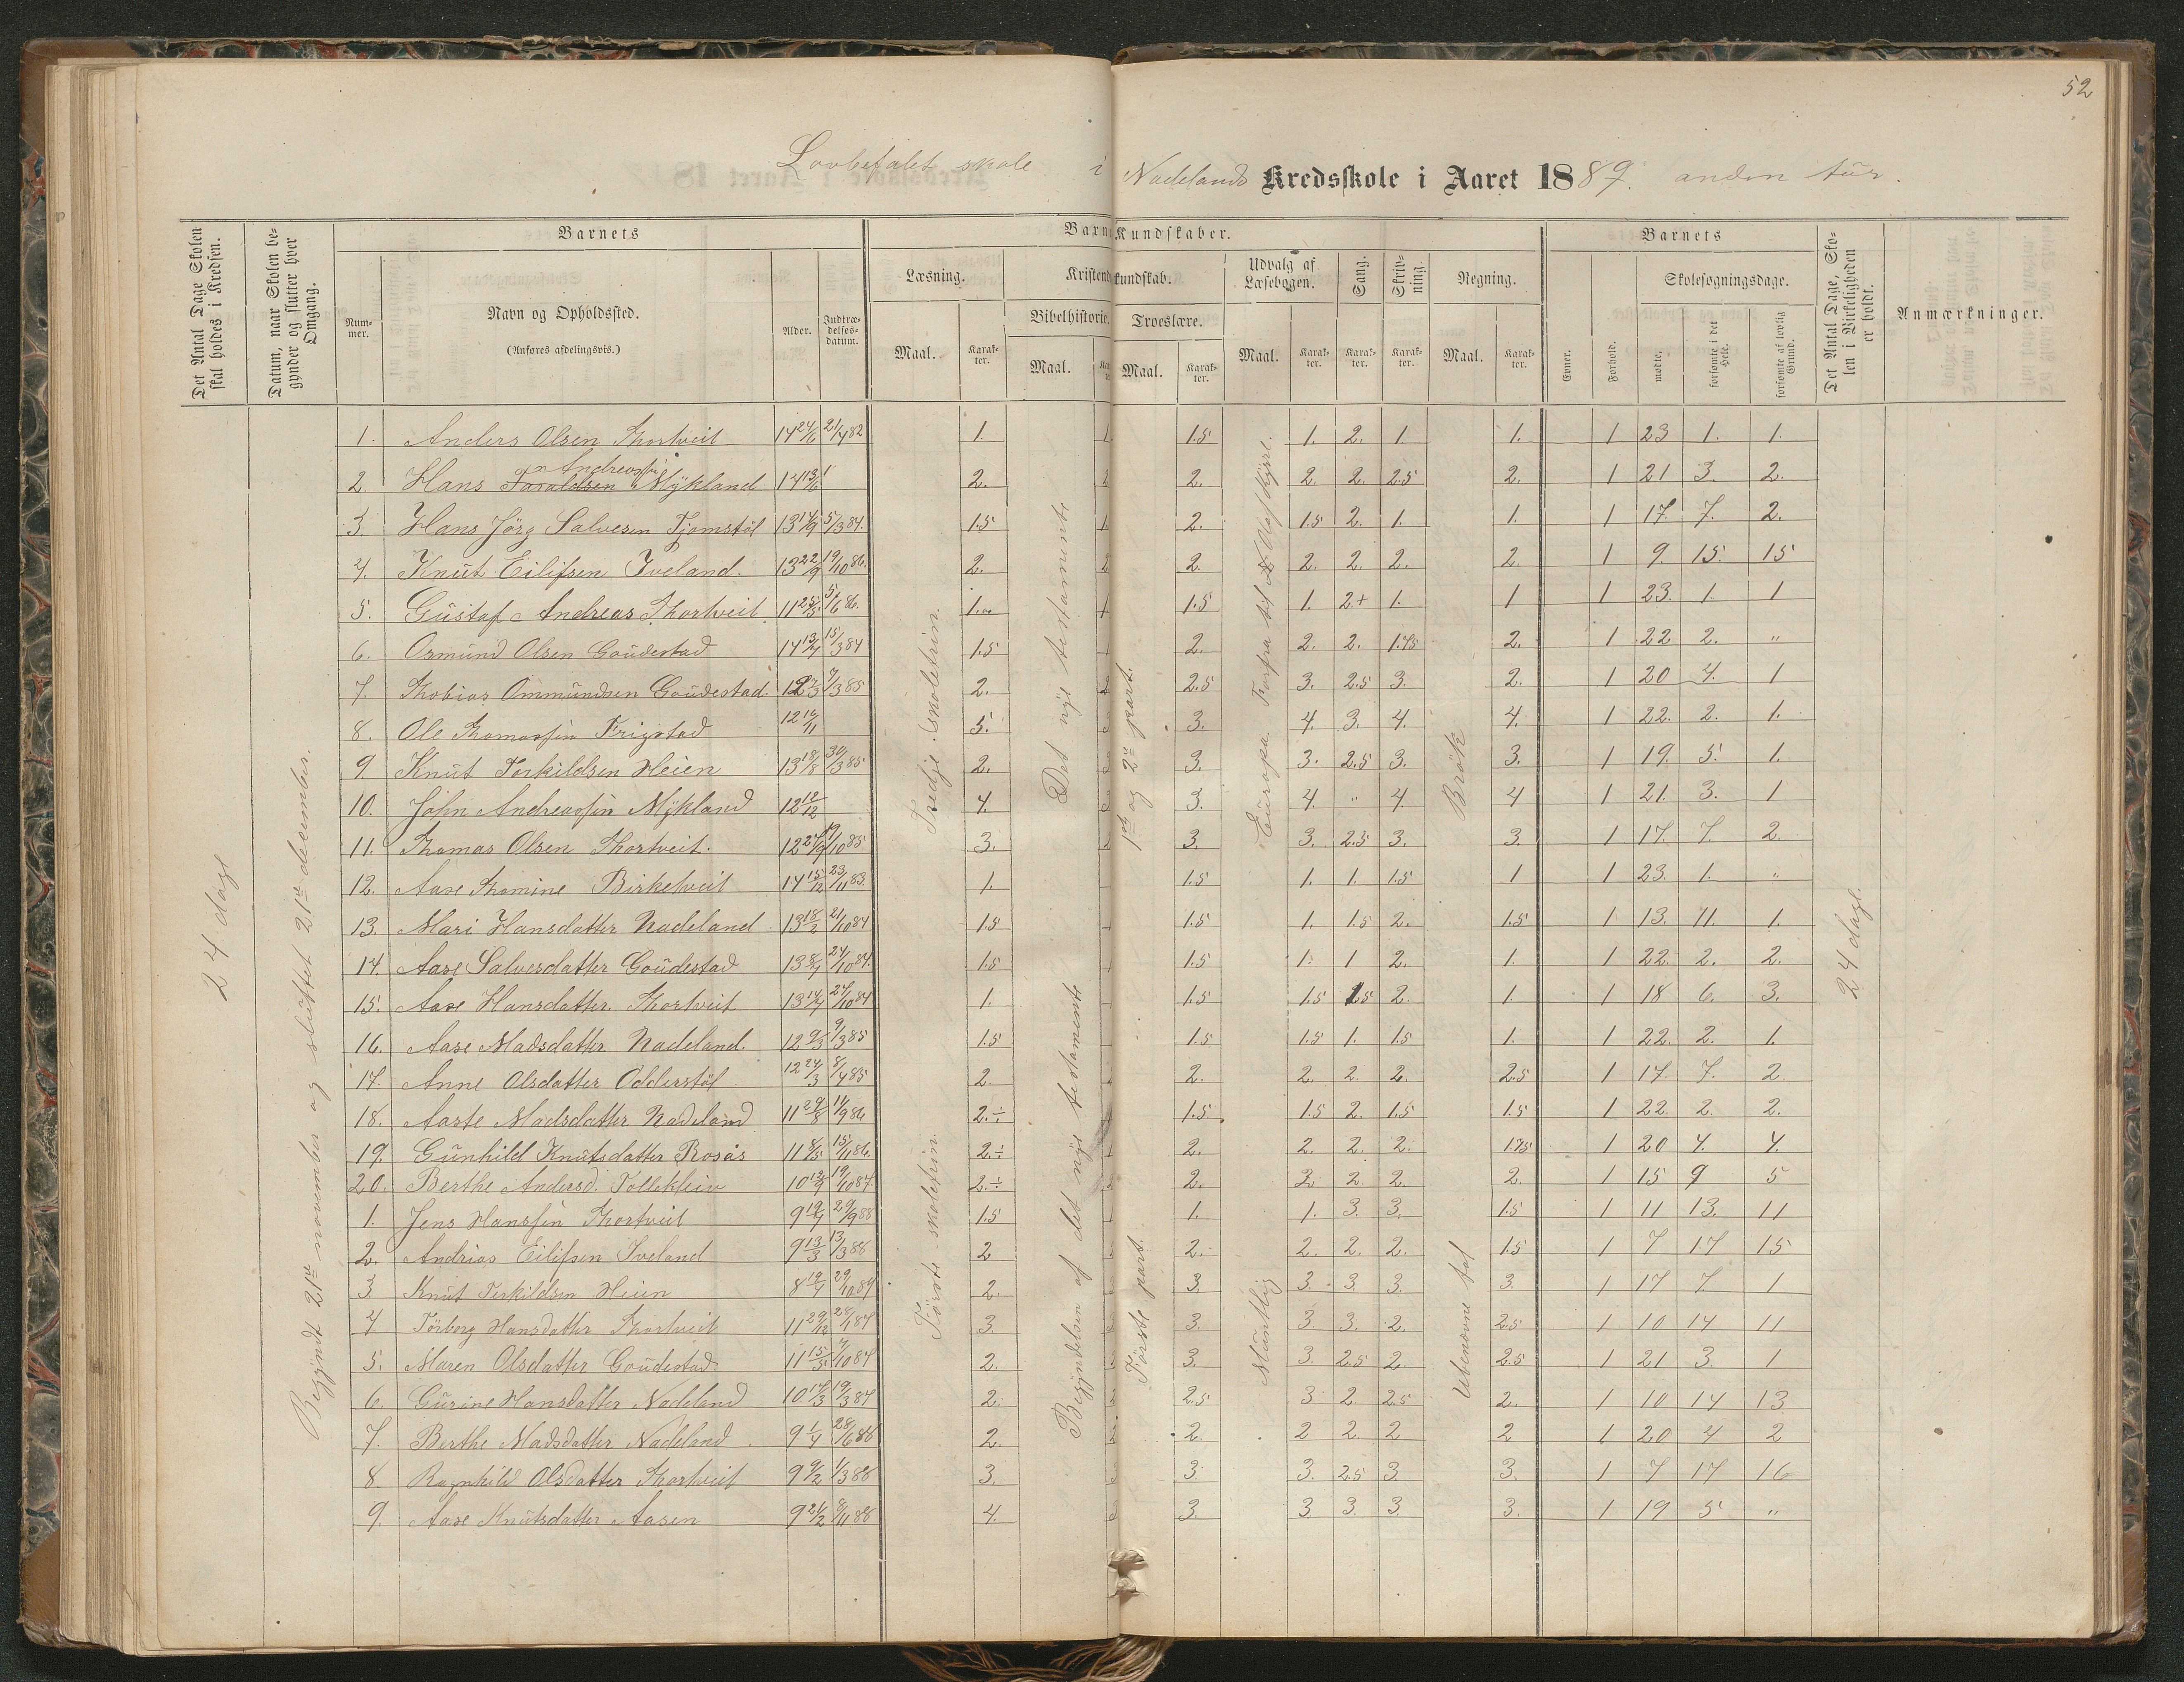 52
Lovbefalet skole i Nadelands Kredsskole i Aaret 1889. anden tür.
Det Antal Dage Skolen skal holdes i Kredsen.
Datum, naar Skolen begynder og slutter hver Omgang.
Barnets
Nummer.
Navn og Opholdssted.
(Anføres afdelingsvis.)
Alder.
Indtrædelsesdatum.
Barn Kundskaber.
Læsning.
Maal.
Karakter.
Kristend kundskab.
Bibelhistorie.
Maal.
Troeslære.
Maal.
Karakter.
Udvalg af Læsebogen.
Maal.
Karakter.
Sang.
Karakter.
Skrivning.
Karakter.
Regning.
Maal.
Karakter.
Barnets
Evner.
Forhold.
Skolesøgningsdage.
mødte.
forsømte i det Hele.
forsømte af lovlig Grund.
Det Antal Dage, Skolen i Virkeligheden er holdt.
Anmærkninger.
24 dage
Begyndt 21de november og sluttet 21de december.
Tredje skoletrin.
Det nye testamente
1ste og 2den part.
Europa.
Brøk
24 dage.
Første skoletrin.
Begyndelsen af det nye testamente
Første part.
Mundtlig
Ubenævne tal
1. Anders Olsen Thortveit 14 24/6 21/4 82 1. 1. 1.5 1. 2. 1 1. 1 23 1. 1.
2. Hans Taraldsen Andreassen Mykland 14 13/6 2. 2. 2. 2. 2.5 2. 1 21 3. 2.
3. Hans Jörg Salvesen Tjomstöl 13 14/9 5/3 84. 1.5 2. 1.5 2. 1. 1. 1 17. 7. 2.
4. Knut Eilifsen Iveland. 13 22/9 19/10 86. 2. 2. 2. 2. 2. 2. 1 9. 15. 15
5. Güstaf Andreas Thortveit 11 25/5 5/6 86. 1. 1.5 1. 2+ 1. 1 1 23. 1. 1
6. Osmund Olsen Goudestad 14 13/4 15/3 84 1.5 2. 2. 2. 1.75 2. 1 22 2. "
7. Thobias Ommundsen Goudestad. 7/3 85 2. 2.5 3. 2.5 3. 2. 1 20 4. 1
8. Ole Thomassen Frigstad 12 16/11 5. 3. 4. 3. 4. 4. 1 22. 2. 1.
9. Knut Torkildsen Heien 13 18/8 30/3 85 2. 3. 3. 2.5 3. 3. 1 19. 5. 1.
10. John Andreassen Mykland 12 12/12 4. 3. 4. " 4. 4 1 21. 3. 1
11. Thomas Olsen Thortveit. 12 19/10 85 3. 3. 3. 2.5 3. 3. 1 17. 7. 2.
12. Aase Thomine Birketveit 14 15/12 23/11 83. 1. 1.5 1. 1. 1.5 1 1 23. 1. "
13. Mari Hansdatter Nadeland 13 18/2 21/10 84 1.5 1.5 1. 1.5 2. 1.5 1 13. 11. 1.
14. Aase Salvesdatter Goudestad 13 8/4 24/10 84. 1.5 1.5 1. 1 2. 1. 1 22. 2. 2.
15. Aase Hansdatter Thortveit 13 14/4 24/10 84 1. 1.5 1.5 1.5 2. 1. 1 18 6. 3.
16. Aase Madsdatter Nadeland. 12 9/3 9/3 85 1.5 1.5 1.5 1. 1.5 1. 1 22. 2. 1.
17. Anne Olsdatter Odderstöl 12 24/3 8/4 85 2 2. 2. 2. 2. 2.5 1 17. 7. 2.
18. Aaste Madsdatter Nadeland 11 29/8 14/9 86 2.÷ 1.5 1.5 2. 1.5 1.5 1 22. 2. 2.
19. Günhild Knutsdatter Rosås 11 8/5 15/11 86. 2.÷ 2. 2. 2. 2. 1.75 1 20 4. 4.
20. Berthe Andersd. Tolleklein 10 12/9 19/10 87. 2.÷ 2. 2 2. 2. 2. 1 15 9 5
1. Jens Hanssen Thortveit 9 19/4 29/9 88 1.5 1. 1. 3. 3. 1.5 1 11 13. 11
2. Andrias Eilifsen Iveland 9 13/3 13/3 88 2 2. 2. 2. 2. 1.5 1 7 17 15
3 Knut Terkildsen Heien 8 19/4 29/10 87 2. 3. 3. 3. 3. 3. 1 17 7 1
4 Törborg Hansdatter Thortveit 11 29/12 3. 3. 3. 3. 2. 2.5 1 10 14 11
5. Maren Olsdatter Goudestad 11 15/5 7/10 87 2. 3. 3. 2.5 2. 2.5 1 21 3. 1
6. Gürine Hansdatter Nadeland 10 17/3 19/3 87 2. 2.5 3 2 2.5 2. 1 10 14 13
7. Berthe Madsdatter Nadeland 9 1/4 28/6 88 2. 2 2 2. 2 2 1 20 4 2
8. Ragnhild Olsdatter Thortveit 9 9/2 1/3 88 3. 3. 3. 2.5 3 3. 1 7 17 16
9. Aase Knutsdatter Aasen 9 8/11 88 4. 3. 3 3. 3. 3. 1 19 5 "